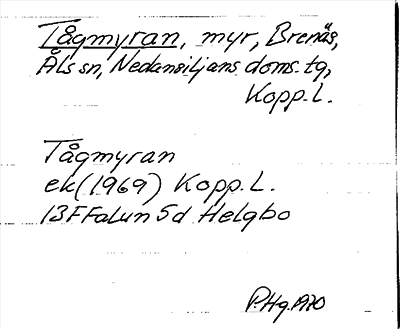 Tågmyran, myr, Brenäs,
Åls sn, Nedansiljans doms. tg,
Kopp. L.
Tågmyran
ek (1969) Kopp. L.
13F Falun 5d Helgbo
P.Hg. 1970